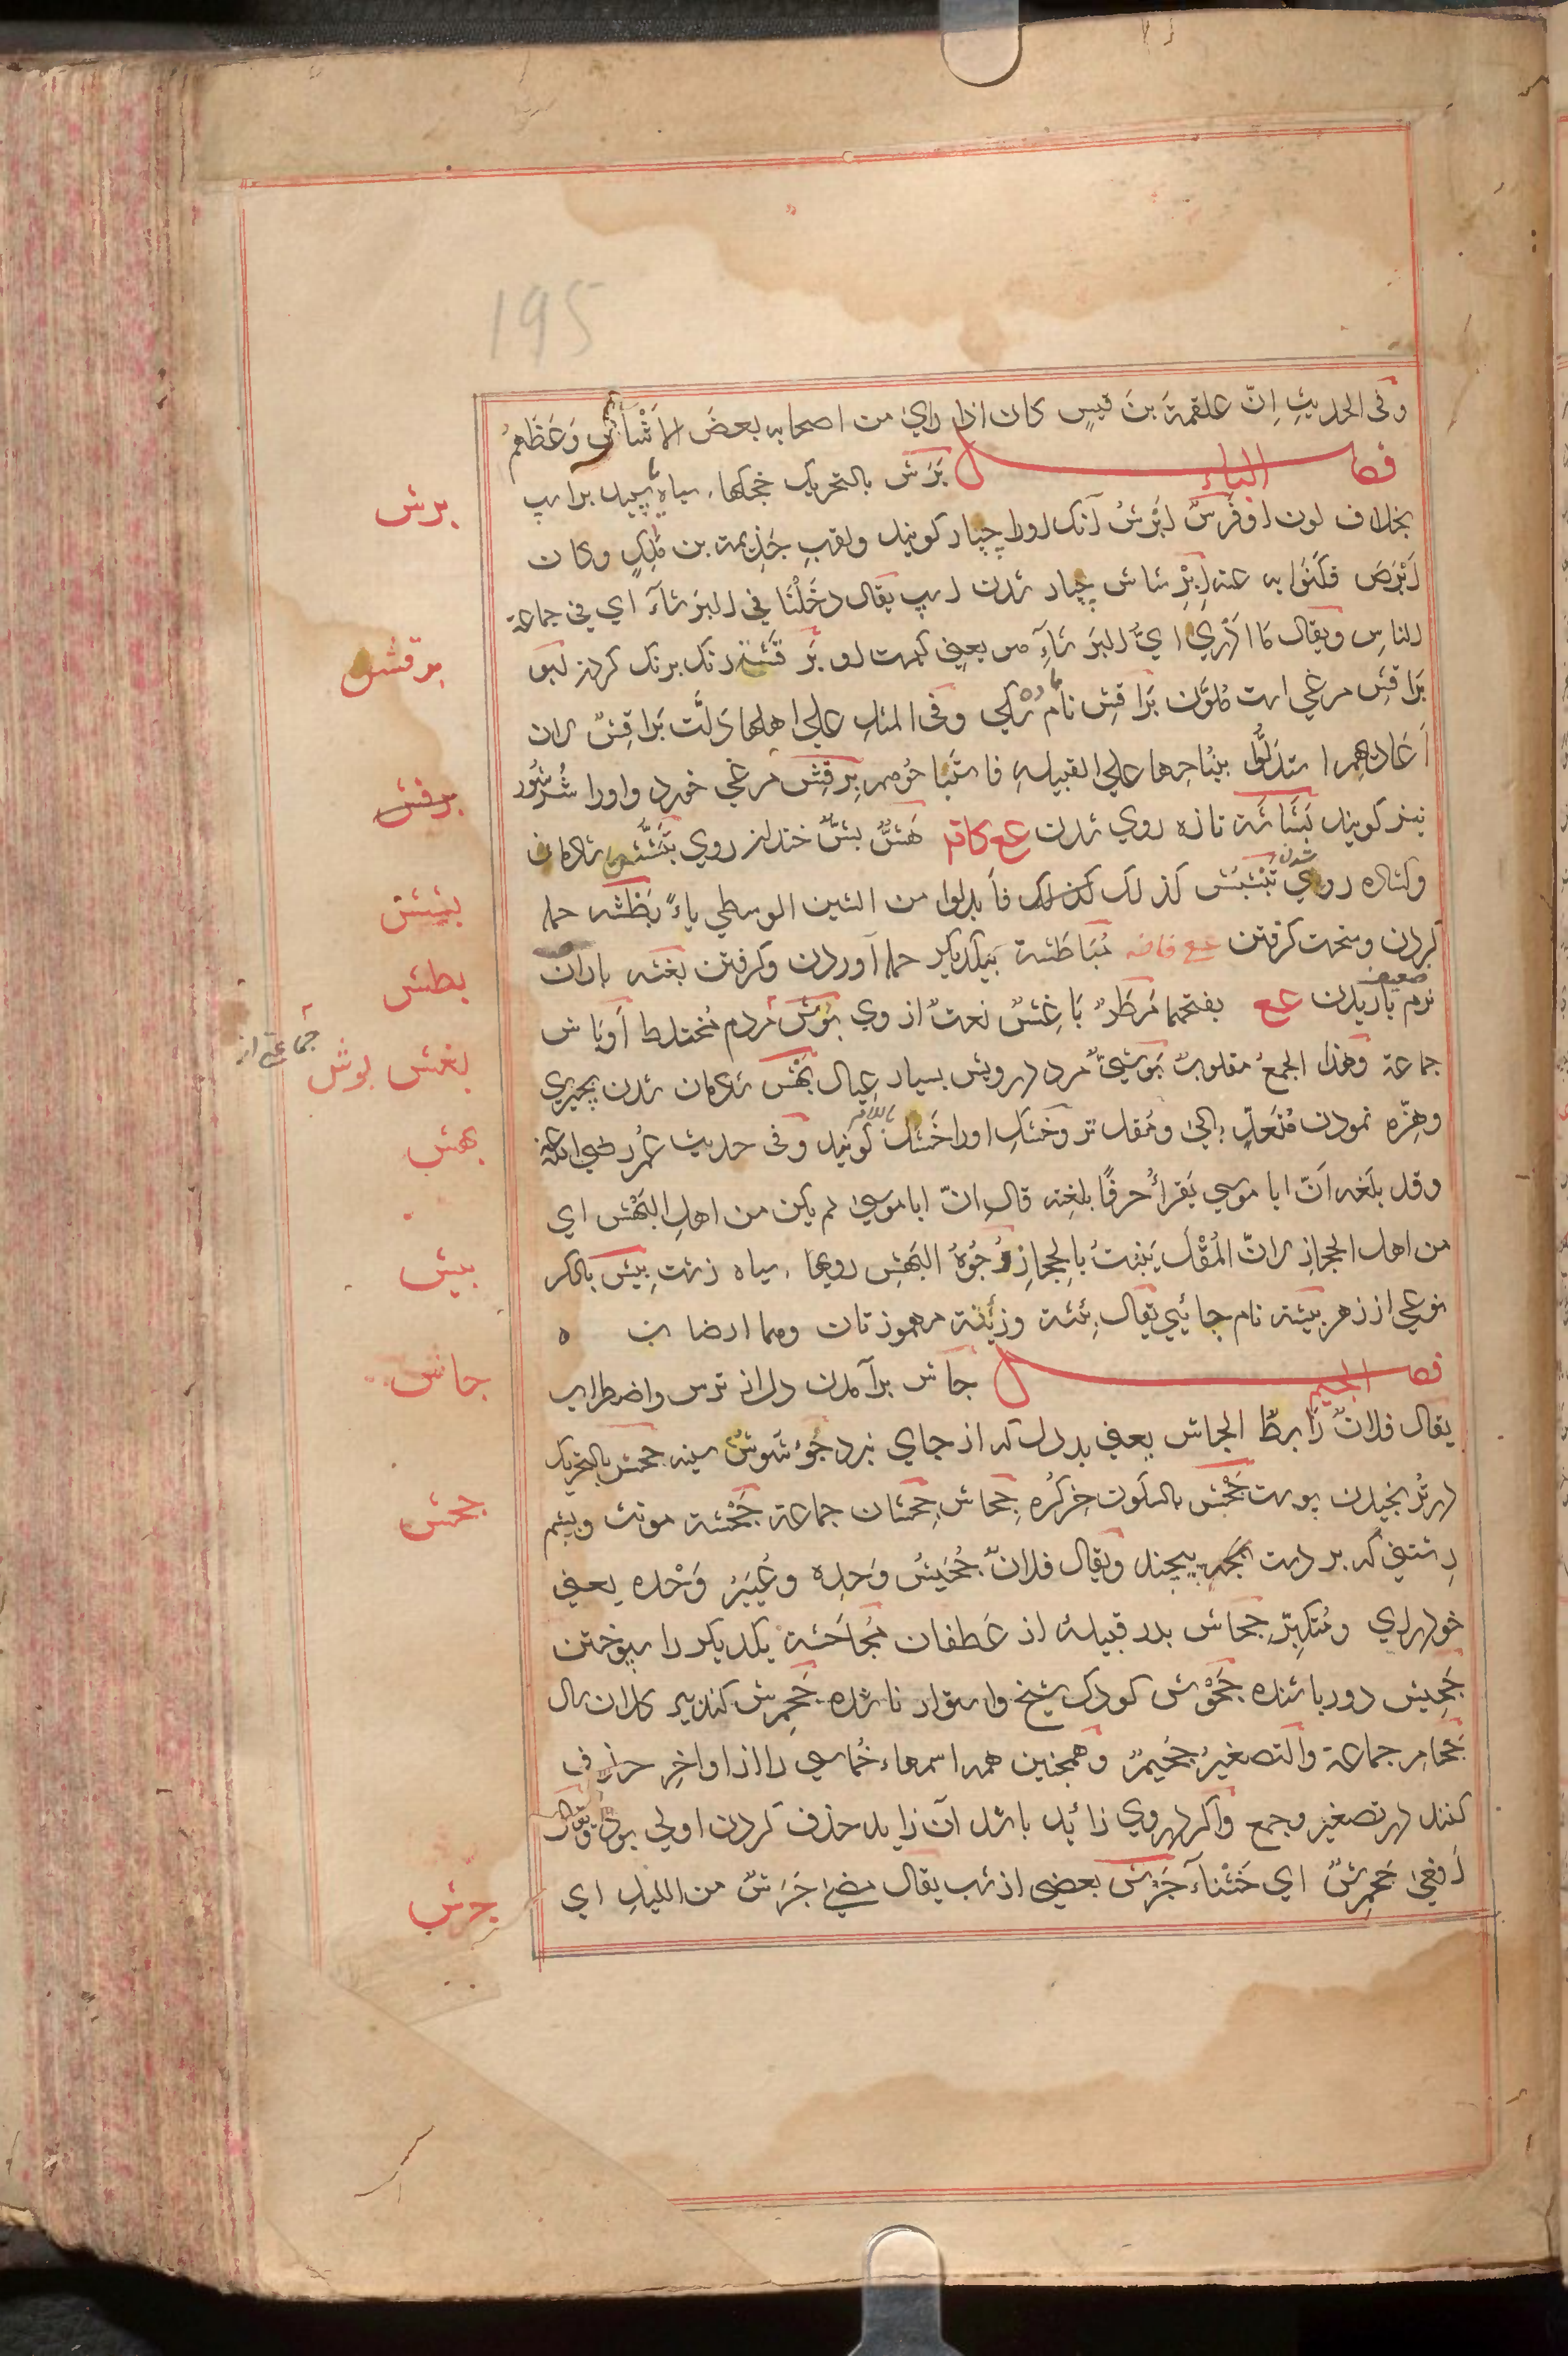 195
وفی الحدیثِ اِنّ علقمةَ بنَ قیسٍ کان اذا رایٰ من اصحابه بعضَ الاَشْاشِ وَعَظَهمُ
فصل الباء بَرَش بالتحریک خجکهاء سیاه وسپید بر اسپ
بخلاف لون او فَرَسٌ اَبْرشُ آنک اورا چپار کویند ولقبِ جَذِیمة بن مٰلِکٍ وکان
اَبْرَصَ فکَنَوْا به عنه اِبْرِشاش چپار شدن اسپ یقال دخَلْنَا فی البَرشآءَ ای فی جماعة
الناسِ ویقال مَا اَدْرِی ایُّ البَرشآءِ هو یعنی کیست او بَرقَشَة رنک برنک کردن ابو
بَراقِش مرغی است مُلوَّن بَراقِش نام ماده سکی وفی المثلِ علی اهلها دَلَّت بَراقِشُ لان
اَعَادیَهم استدلّوا بنُباحِها علی القبیلةِ فاستَباحُوهم بِرقِش مرغی خورد واورا شُرشُور
نیز کویند بَشَاشَة تازه روی شدن عع کاقه هَشٌّ بشٌّ خندان روی بَشَّش شادمان
وکشاده روی شدن تَبَشْبَش کذلک کذلک فاَبدلوا من الشین الوسطی باءً بَطْشه حمله
کردن وسخت کرفتن عع قاضه مُبَاطَشة بیکدیکر حمله آوردن وکرفتن بغشه باران
ضعیف
نرم باریدن عع بفتحهما مَطَرٌ بَاغِشٌ نعتٌ ازوی بَوْش مردم مُختلط اَوبَاش
جماعة وهذا الجمعُ مقلوبٌ بَوْشِیٌّ مرد درویش بسیار عیال بَهْش شادمان شدن بچیزی
وهِزّه نمودن مُتعَدٍّ بالیٰ ومُقل تر وخشکِ اورا خَشْل کویند وفی حدیث عُمَر رضی الله عنه
وقد بلَغه اَنّ ابا موسی یَقرأُ حرفًا بلغتِه قال انّ ابا موسیٰ لم یکن من اهلِ البَهْش ای
من اهل الحجازِ لانّ المُقْلَ یَنْبُتُ بالحِجازِ وُجُوهُ البَهْشِ رویهاء سیاه زشت بِیْش بالکسر
نوعی از زهر بِیشَة نام جائیی یقال بِئشَة وزِئْنة مهموزتان وهما ارضان ه
فصل الجیم جاش برآمدن دل از ترس واضطراب
یقال فلانٌ رَابِطُ الجاش یعنی پر دل که از جای نبرد جُؤشُوش سینه جحش بالتحریک
درتُرُنجیدن پوست جَحْش بالسکون خرکُره جِحَاش جِحْشان جماعة جَحْشة مونث وپشم
دشتی که بر دست بکرد پیچند ویقال فلانٌ جُحَیْشُ وَحدِه وعُیَیْرُ وَحْده یعنی
خودرای ومُتکبِّر جِحَاش پدر قبیلهٔ از غَطفان مُجَاحَشَة یکدیکر را سپوختن
جَحِیش دور باشنده جَحْوَش کودک شیخ واستوار ناشده جَحْمَرِش کنده پیر کلان سال
جَحَامِر جماعة والتصغیرُ جُحَیْمِرٌ وهمچنین همه اسمهاء خُماسی را از اواخِر حرفی
کنند در تصغیر وجمع واکر دروی زائد باشد آن زاید حذف کردن اولی بود ویقال
اَفعیٰ جَحْمَرِشٌ ای خَشْنآء جَرْش بعضی از شب یقال مضیٰ جَرْشٌ من اللیلِ ای
برش
برقش
برقش
بشش
بطش
بغش بوش
جماعتی از
بهش
بیش
جاش
جحش
جرش